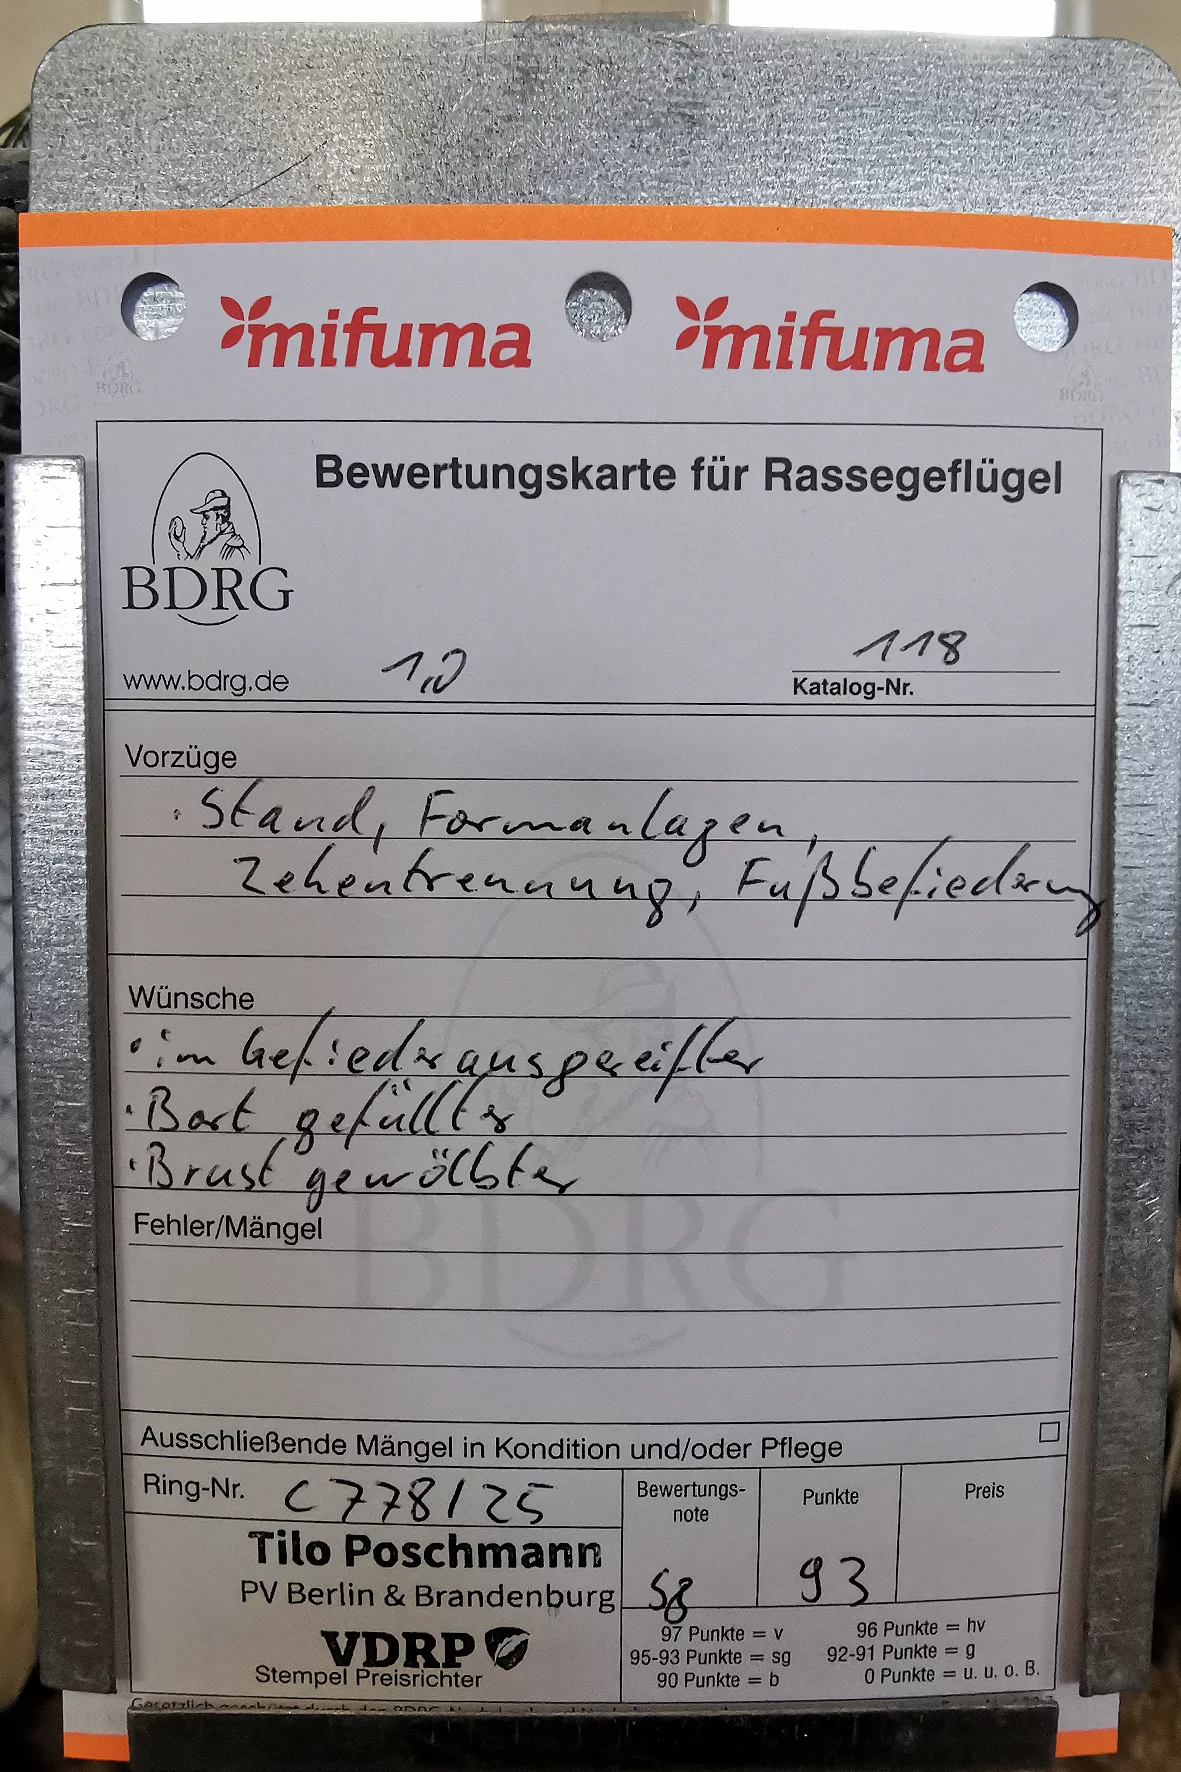 mifuma mifuma
Bewertungskarte für Rassegeflügel
BDRG
www.bdrg.de
1,0
118
Katalog-Nr.
Vorzüge
· Stand, Formanlagen,
Zehentrennung, Fußbefiederung
Wünsche
· im Gefieder ausgereifter
· Bart gefüllter
· Brust gewölbter
Fehler/Mängel
BDRG
Ausschließende Mängel in Kondition und/oder Pflege
Ring-Nr. C 778 / 25
Bewertungs-
note
sg
Punkte
93
Preis
Tilo Poschmann
PV Berlin & Brandenburg
VDRP
Stempel Preisrichter
97 Punkte = v 96 Punkte = hv
95-93 Punkte = sg 92-91 Punkte = g
90 Punkte = b 0 Punkte = u. u. o. B.